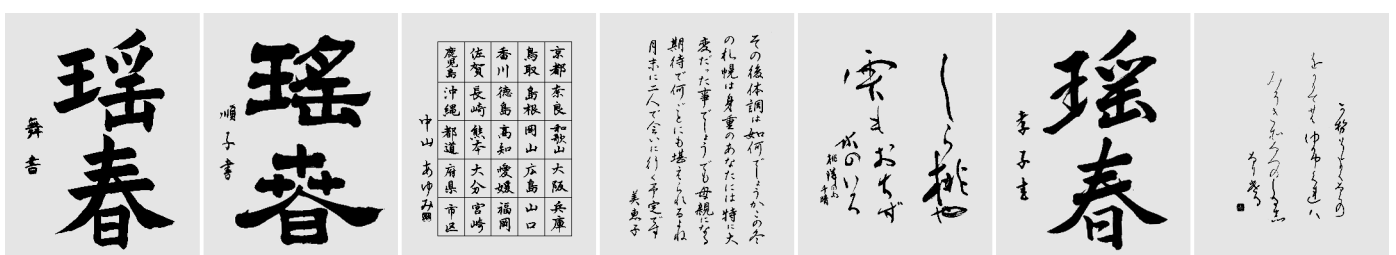 瑶春
舞書
瑶春
順子書
京都 奈良 和歌山 大阪 兵庫
鳥取 島根 岡山 広島 山口
香川 徳島 高知 愛媛 福岡
佐賀 長崎 熊本 大分 宮崎
鹿児島 沖縄 都道 府県 市区
中山 あゆみ
その後体調は如何でしょうかこの冬
の札幌は身重のあなたには特に大
変だった事でしょうでも母親になる
期待で何ごとにも堪えられるよね
月末に二人で会いに行く予定です
美恵子
しら桃や
雫もおちず
水のいろ
瑶春
孝子書